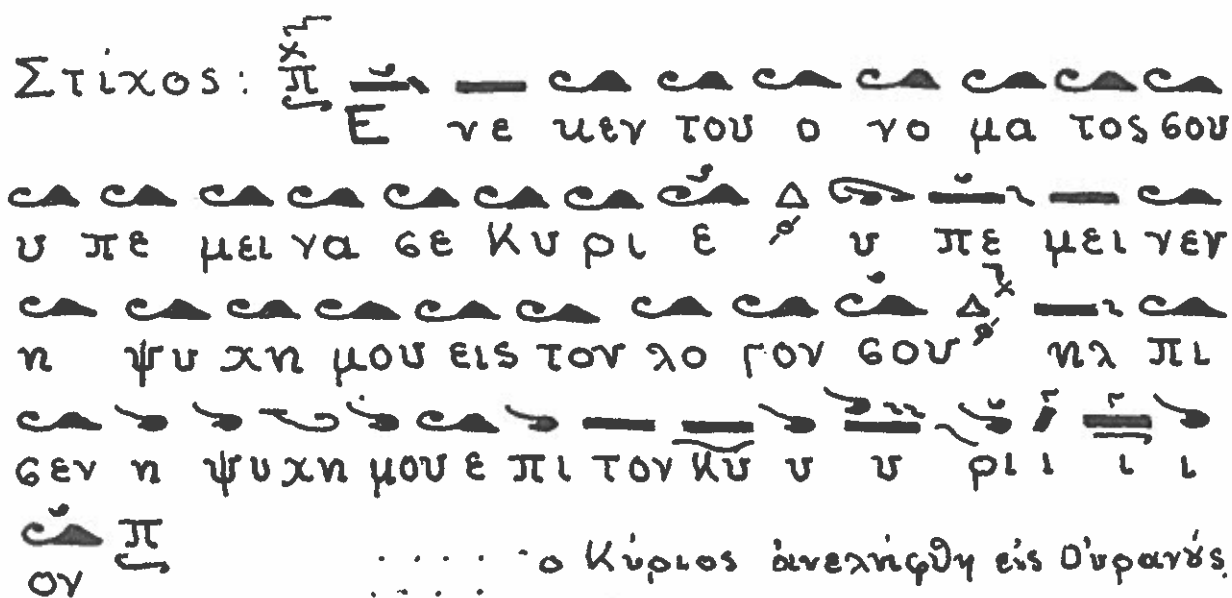 Στίχος: π Ε νε κεν του ο νο μα τος σου
υ πε μει να σε Κυ ρι ε Δ υ πε μει νεν
η ψυ χη μου εις τον λο γον σου Δ ηλ πι
σεν η ψυχη μου ε πι τον κυ υ υ ρι ι ι ι
ον π . . . . . . . . ο Κύριος ἀνελήφθη εἰς Οὐρανούς.